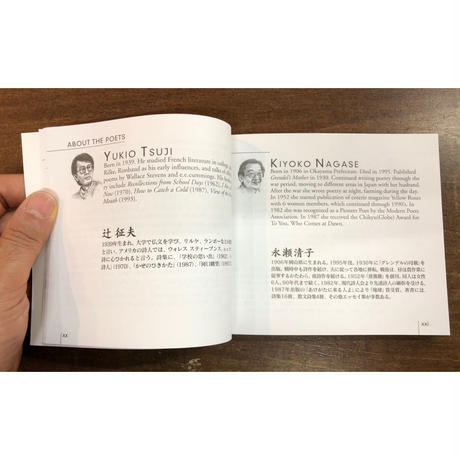 ABOUT THE POETS
YUKIO TSUJI
Born in 1939. He studied French literature in college
Rilke, Rimbaud as his early influences, and talks of
poems by Wallace Stevens and e.e.cummings. His
ry include Recollections from School Days (1962),
Now (1970), How to Catch a Cold (1987), View of the
Mouth (1993).
辻 征夫
1939年生まれ、大学で仏文を学び、リルケ、ランボーなどの
と言い、アメリカの詩人では、ウォレス スティーブンス、
詩に心ひかれると言う。詩集に、「学校の思い出」(1962)
詩」(1970)、「かぜのひきかた」(1987)、「河口眺望」(1993)
xx
KIYOKO NAGASE
Born in 1906 in Okayama Prefecture. Died in 1995. Published
Grendel's Mother in 1930. Continued writing poetry through the
war period, moving to different areas in Japan with her husband.
After the war she wrote poetry at night, farming during the day.
In 1952 she started publication of coterie magazine Yellow Roses
with 6 women members, which continued through 1990's. In
1982 she was recognized as a Pioneer Poet by the Modern Poets
Association. In 1987 she received the Chikyu(Globe) Award for
To You, Who Comes at Dawn.
永瀬清子
1906年岡山県に生まれる。1995年没。1930年に「グレンデルの母親」を
出版。戦時中も詩作を続け、夫に従って各地に移転。戦後は、昼は農作業に
従事するかたわら、夜詩作を続ける。1952年「黄薔薇」を創刊、同人は女性
6人、90年代まで続く。1982年、現代詩人会より先達詩人の顕彰を受ける。
1987年出版の「あけがたに来る人よ」により「地球」賞受賞。著書には、
詩集16冊、散文詩集4冊、その他エッセイ集が多数ある。
xxi